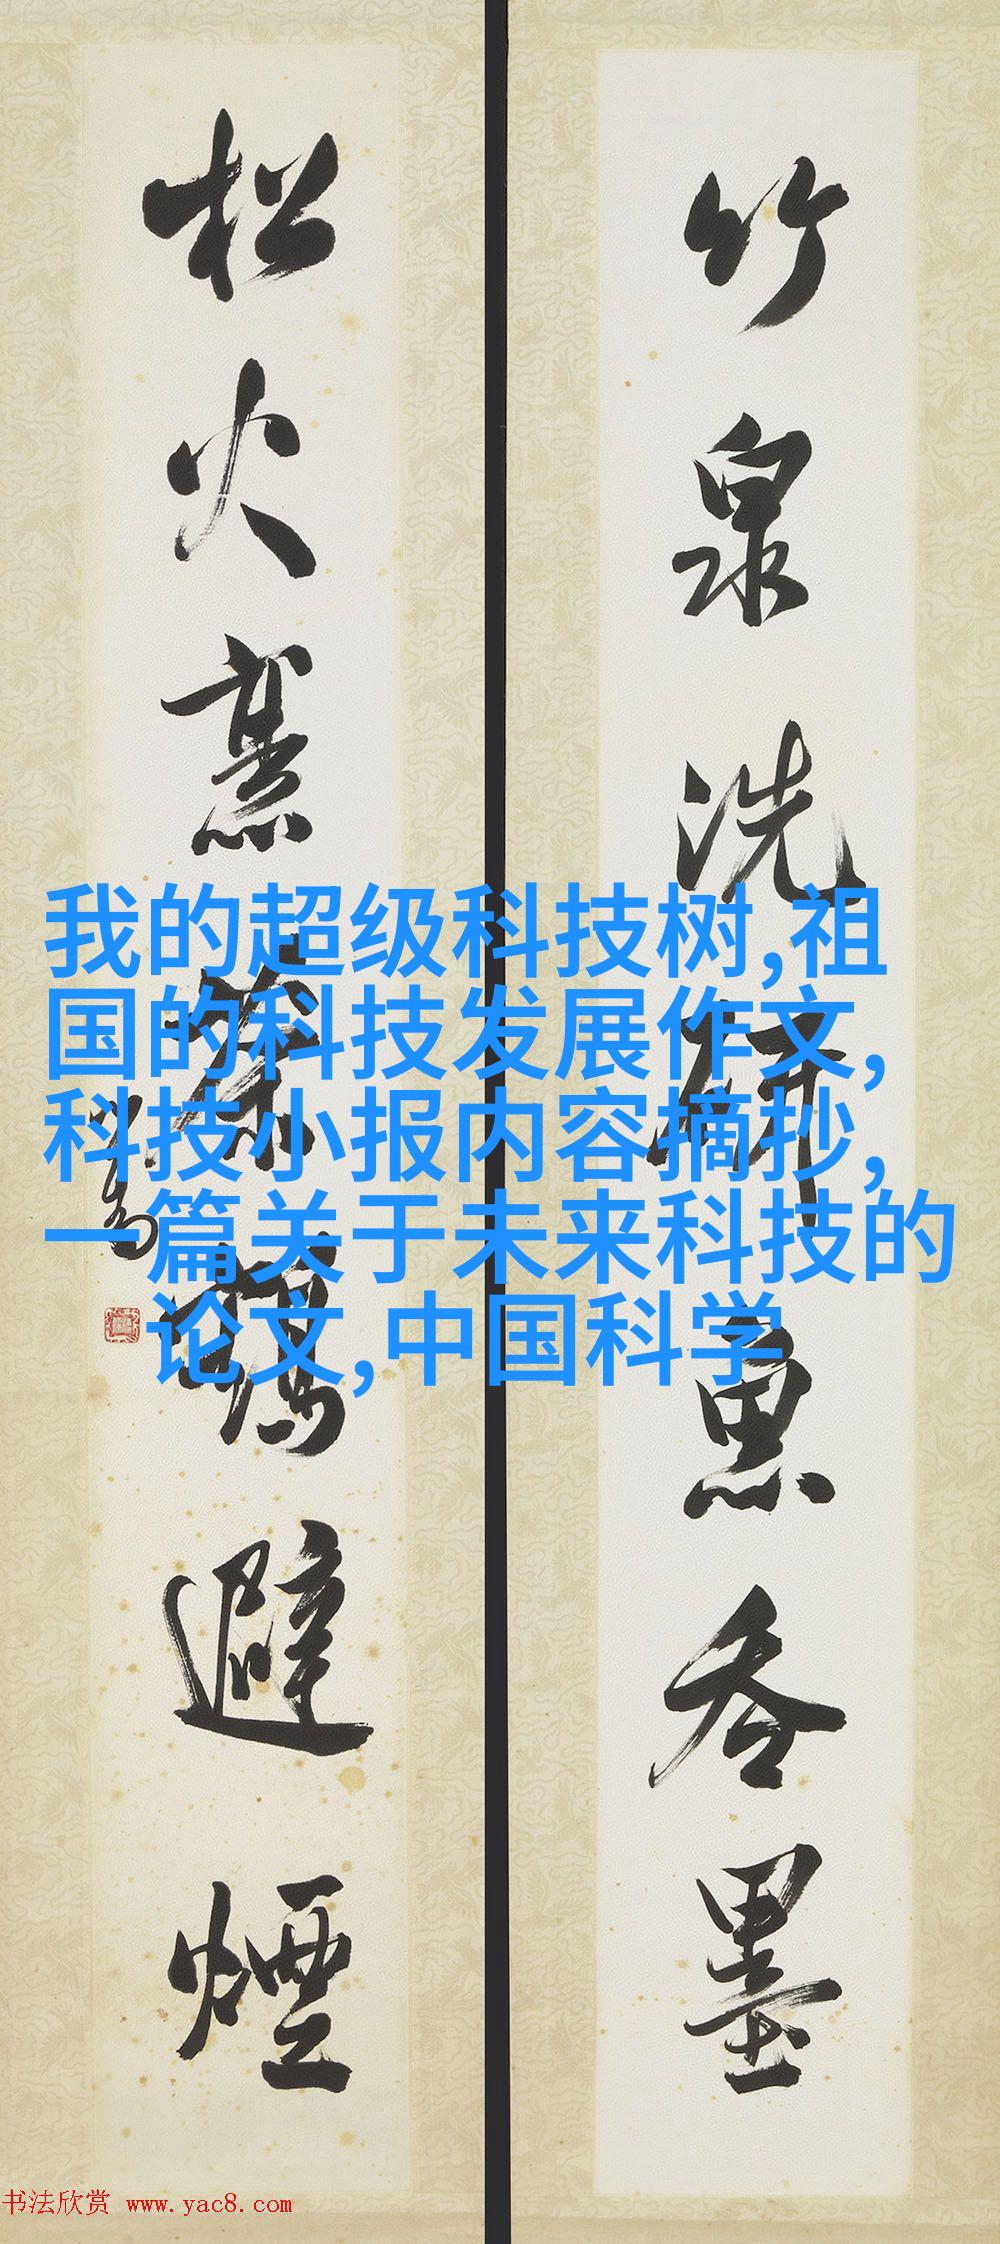 竹泉洗研魚吞墨
松火烹茶鶴避煙
我的超级科技树,祖
国的科技发展作文,
科技小报内容摘抄,
一篇关于未来科技的
论文,中国科学
书法欣赏 www.yac8.com